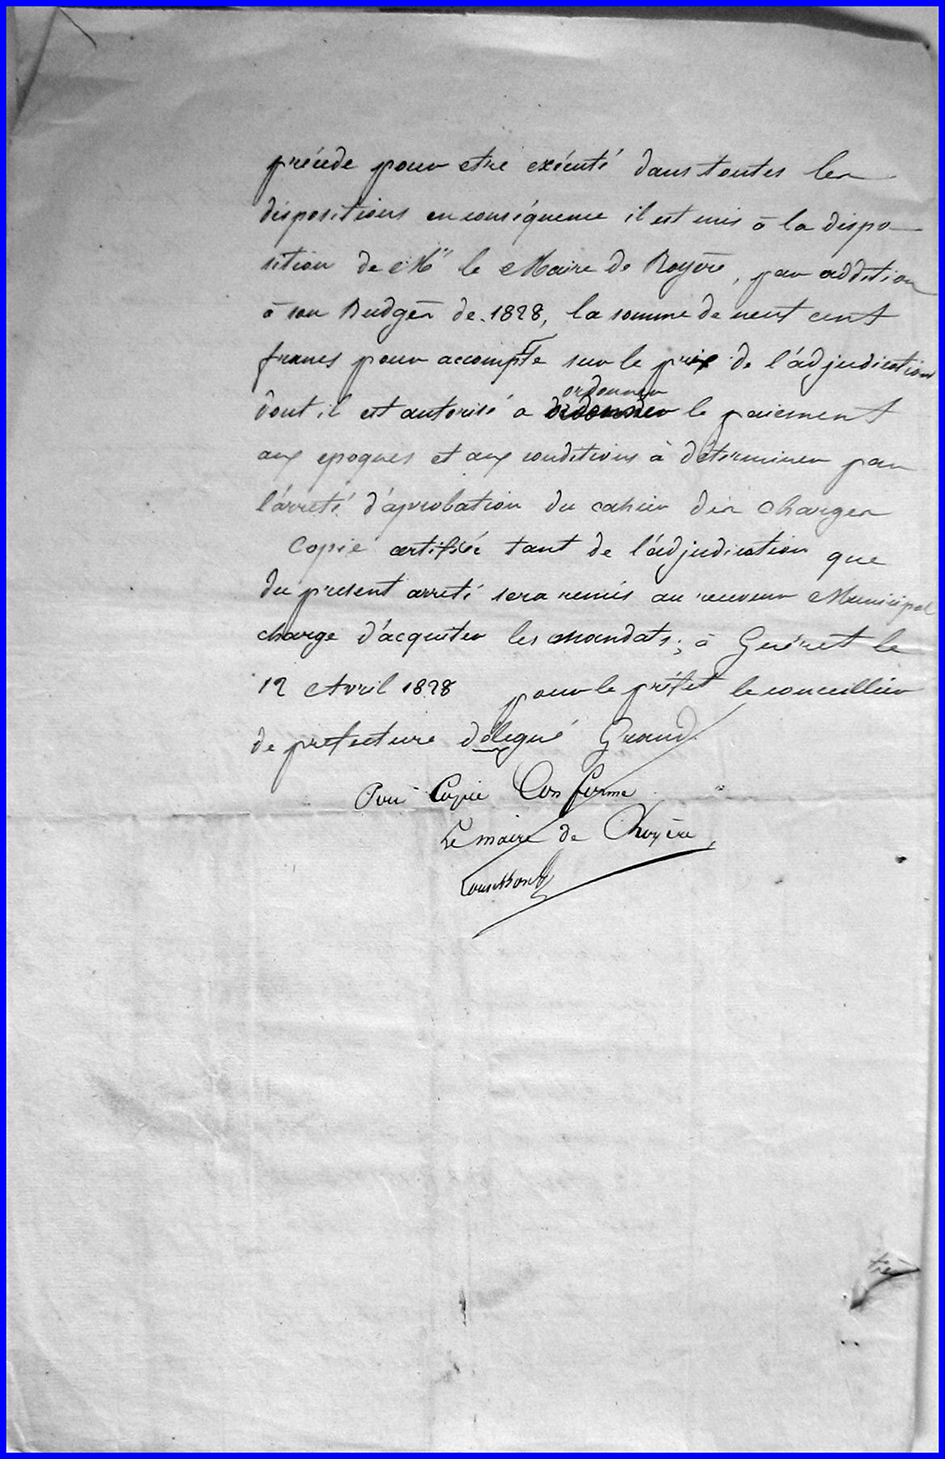 précède pour etre exécuté dans toutes les
dispositions en conséquence il est mis à la dispo
sition de Mr le Maire de Royère, par addition
à son Budget de 1828, la somme de neuf cent
francs pour accompte sur le prix de l'adjudication
ordonner
dont il est autorisé a le paiement
aux epoques et aux conditions à déterminer par
l'arreté d'aprobation du cahier des charges
Copie certifiée tant de l'adjudication que
du present arreté sera remis au receveur Municipal
charge d'acquiter les mandats; à Guéret le
12 Avril 1828 pour le préfet le conseillier
de prefecture délegué Grand
Pour Copie Conforme
Le maire de Royère,
tre